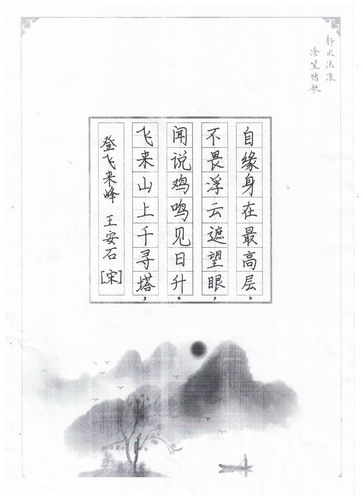 静水流深
沧笙踏歌
登飞来峰 王安石 [宋]
飞来山上千寻塔，
闻说鸡鸣见日升。
不畏浮云遮望眼，
自缘身在最高层。